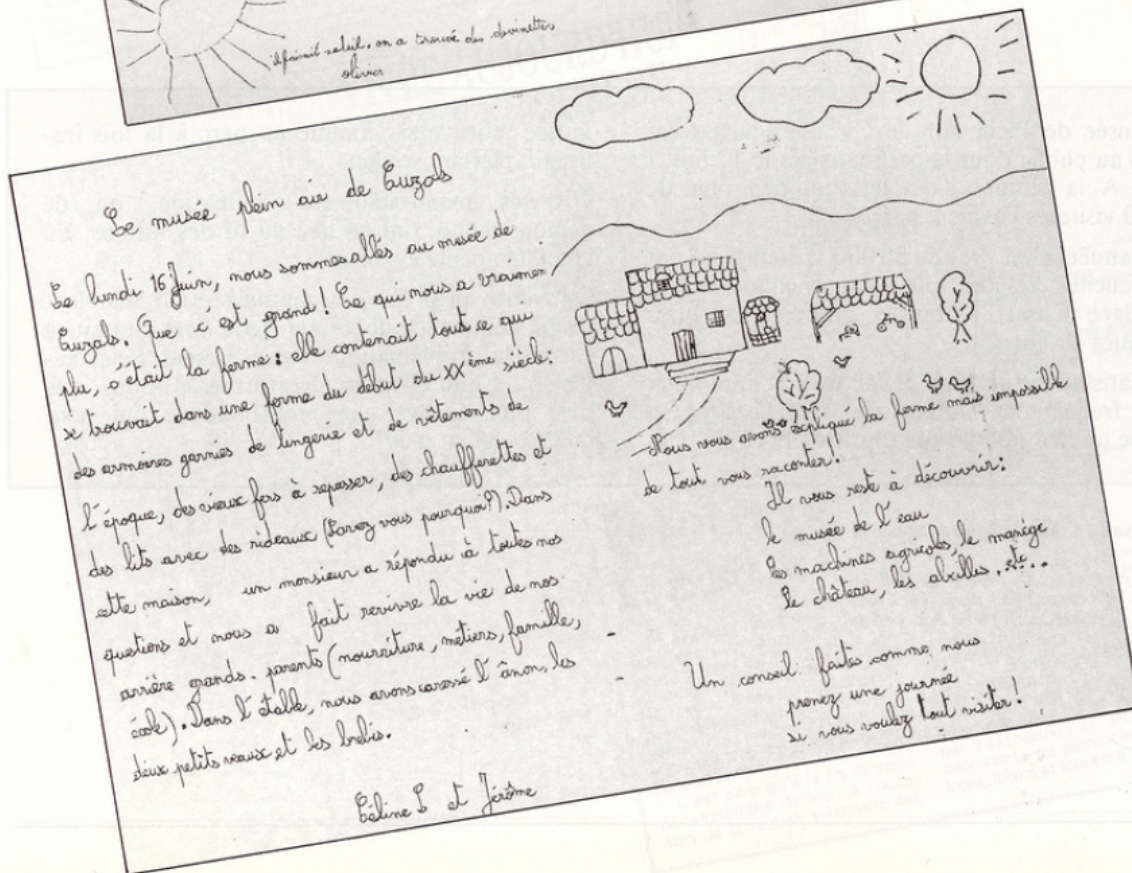 il faisait soleil, on a trouvé des devinettes
olivier
Le musée plein air de Cuzals
Le lundi 16 Juin, nous sommes allés au musée de
Cuzals. Que c'est grand! Ce qui nous a vraimen
plu, c'était la ferme: elle contenait tout ce qui
se trouvait dans une ferme du début du XXème siècle:
des armoires garnies de lingerie et de vêtements de
l'époque, des vieux fers à repasser, des chaufferettes et
des lits avec des rideaux (Savez vous pourquoi?). Dans
cette maison, un monsieur a répondu à toutes nos
questions et nous a fait revivre la vie de nos
arrière grands-parents (nourriture, métiers, famille,
école). Dans l'étable, nous avons caressé l'ânon, les
deux petits veaux et les brebis.
Céline L et Jérôme
Nous vous avons expliqué la ferme mais impossible
de tout vous raconter!
Il vous reste à découvrir:
le musée de l'eau
les machines agricoles, le manège
le château, les abeilles...etc...
Un conseil: faites comme nous
prenez une journée
si vous voulez tout visiter!